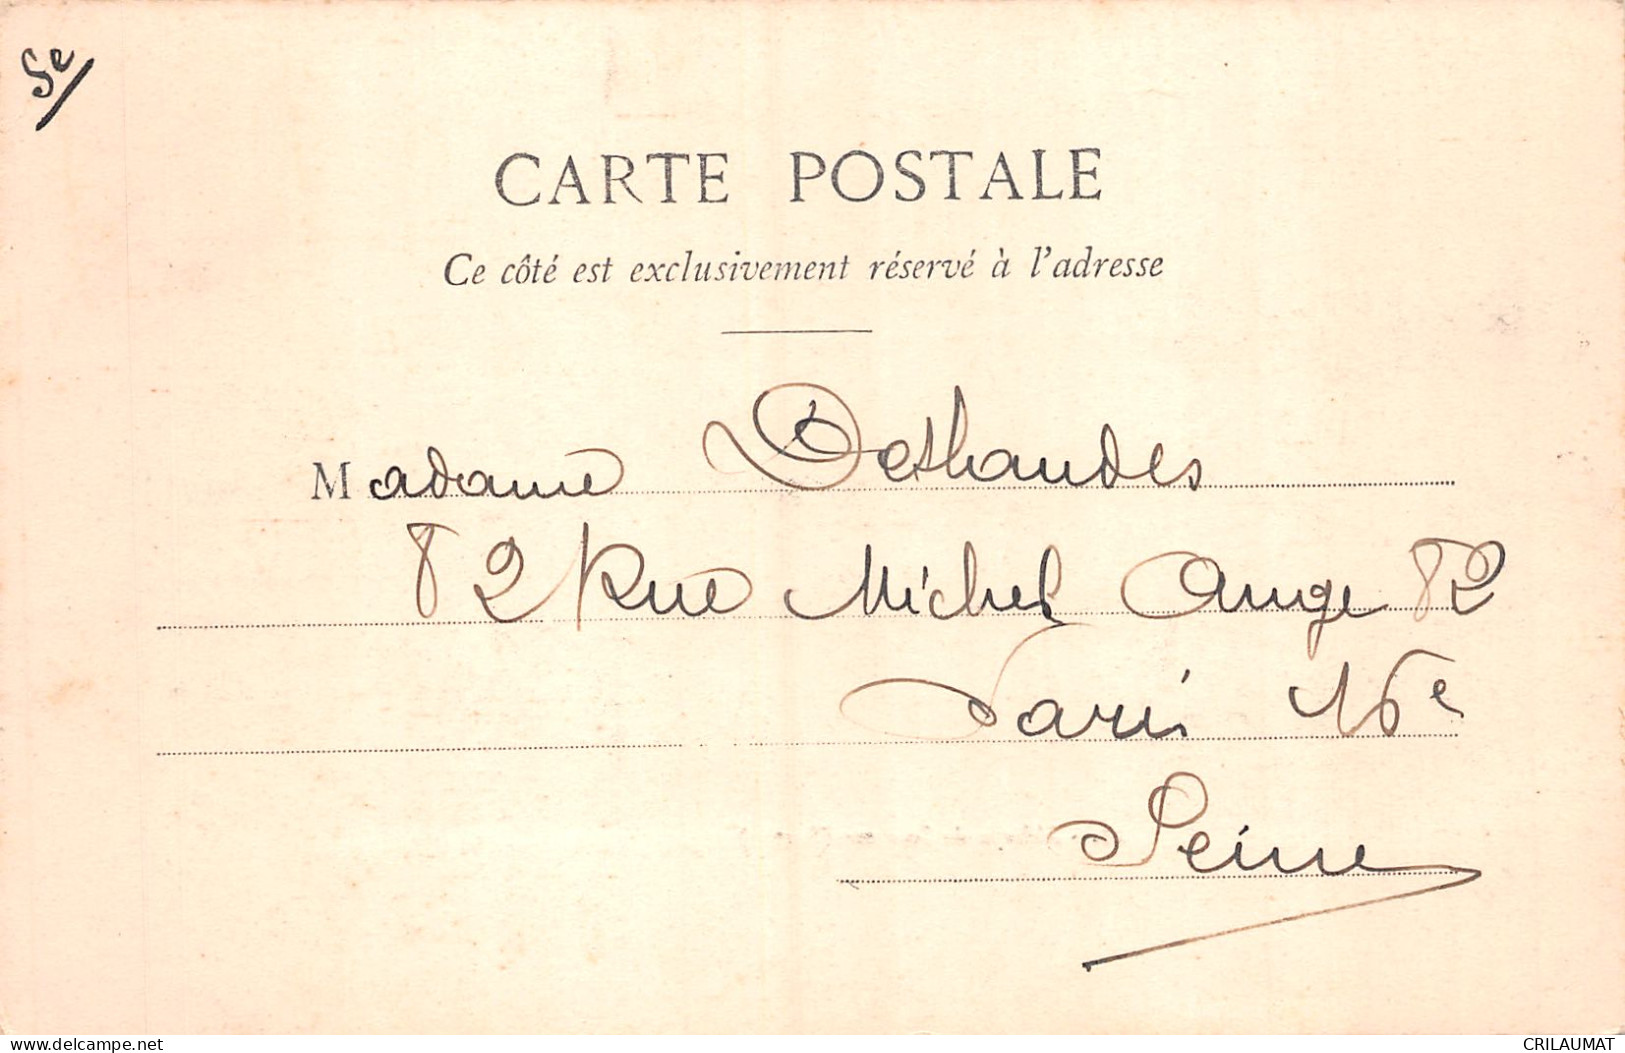 5e/
CARTE POSTALE
Ce côté est exclusivement réservé à l'adresse
Madame Deshandes
82 Rue Michel Ange 82
Paris 16e
Seine
www.delcampe.net
CRILAUMAT